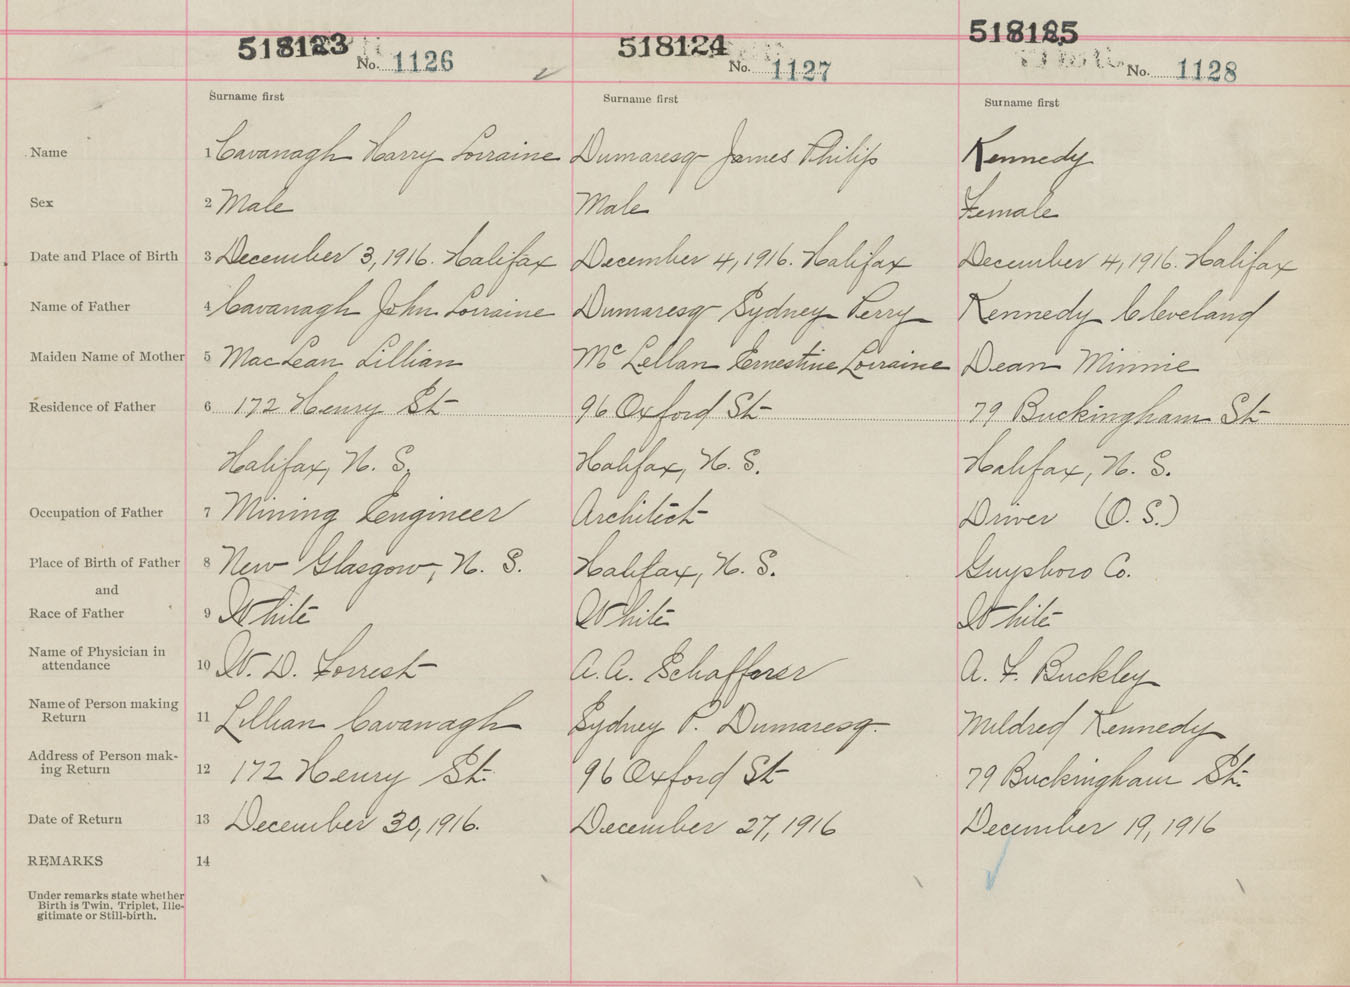 518123 518124 518125
No. 1126 No. 1127 No. 1128
Surname first Surname first Surname first
Name 1 Cavanagh Harry Lorraine Dumaresq James Philip Kennedy
Sex 2 Male Male Female
Date and Place of Birth 3 December 3, 1916. Halifax December 4, 1916. Halifax December 4, 1916. Halifax
Name of Father 4 Cavanagh John Lorraine Dumaresq Sydney Perry Kennedy Cleveland
Maiden Name of Mother 5 MacLean Lillian McLellan Ernestine Lorraine Dean Minnie
Residence of Father 6 172 Henry St 96 Oxford St 79 Buckingham St
Halifax, N. S. Halifax, N. S. Halifax, N. S.
Occupation of Father 7 Mining Engineer Architect Driver (O. S.)
Place of Birth of Father 8 New Glasgow, N. S. Halifax, N. S. Guysboro Co.
and
Race of Father 9 White White White
Name of Physician in
attendance 10 W. D. Forrest A. A. Schafferer A. F. Buckley
Name of Person making
Return 11 Lillian Cavanagh Sydney P. Dumaresq. Mildred Kennedy
Address of Person mak-
ing Return 12 172 Henry St. 96 Oxford St 79 Buckingham St.
Date of Return 13 December 30, 1916. December 27, 1916 December 19, 1916
REMARKS 14
Under remarks state whether
Birth is Twin, Triplet, Ille-
gitimate or Still-birth.